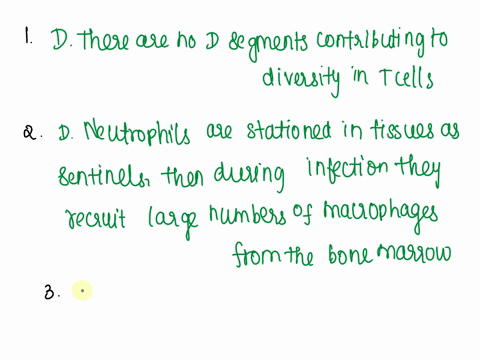 1. D. There are no D segments contributing to
diversity in T cells
2. D. Neutrophils are stationed in tissues as
sentinels, then during infection they
recruit large numbers of macrophages
from the bone marrow
3.